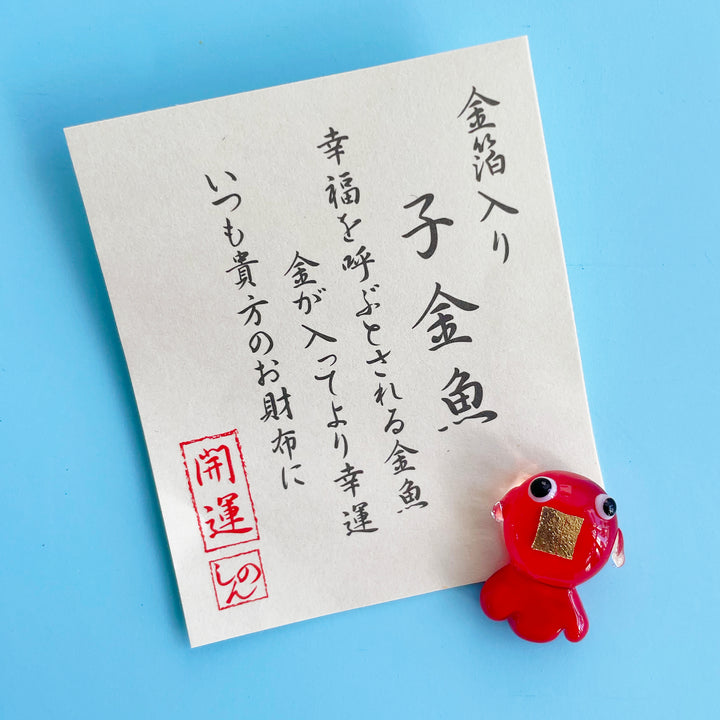 金箔入り
子金魚
幸福を呼ぶとされる金魚
金が入ってより幸運
いつも貴方のお財布に
開運
のしん